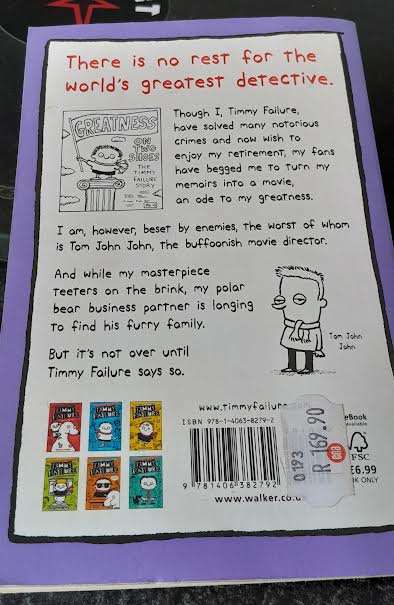 There is no rest for the
world's greatest detective.
GREATNESS
ON
TWO
SHOES
THE
TIMMY
FAILURE
STORY
Though I, Timmy Failure,
have solved many notorious
crimes and now wish to
enjoy my retirement, my fans
have begged me to turn my
memoirs into a movie,
an ode to my greatness.
I am, however, beset by enemies, the worst of whom
is Tom John John, the buffoonish movie director.
And while my masterpiece
teeters on the brink, my polar
bear business partner is longing
to find his furry family.
But it's not over until
Timmy Failure says so.
Tom John
John
TIMMY FAILURE
TIMMY FAILURE
TIMMY FAILURE
TIMMY FAILURE
TIMMY FAILURE
TIMMY FAILURE
www.timmyfailure
ISBN 978-1-4063-8279-2
9 781406 382792
www.walker.co.u
0193
R 169.90
eBook
available
FSC
£6.99
UK ONLY